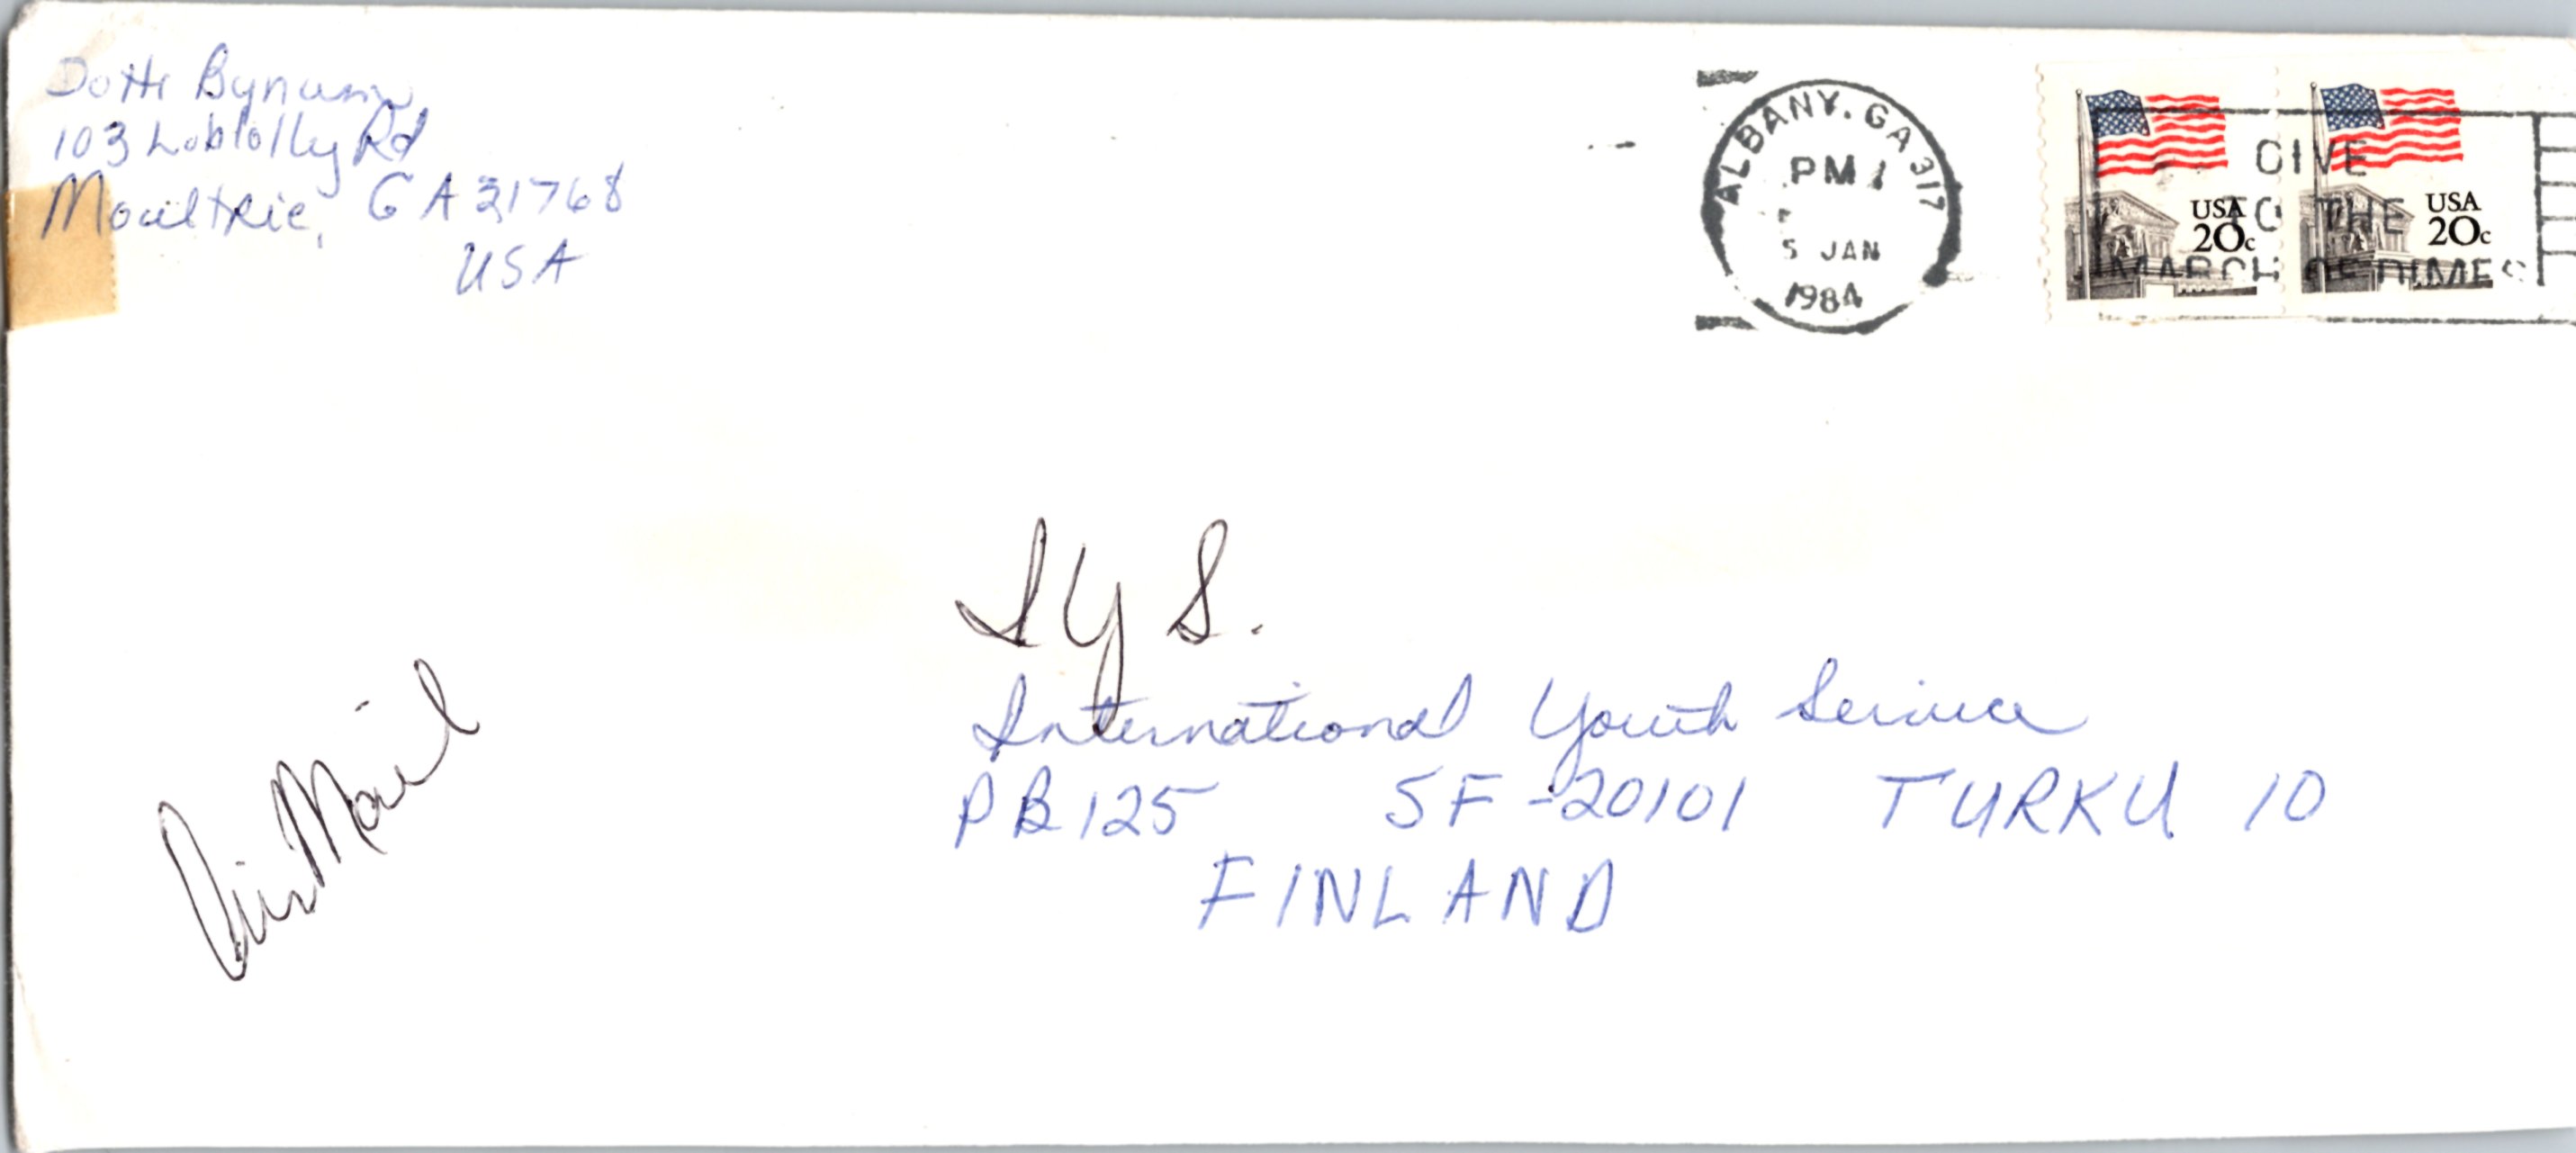 Dotti Bynum
103 Loblolly Rd
Moultrie, GA 31768
USA
ALBANY, GA 317
PM
5 JAN
1984
GIVE
TO THE
MARCH OF DIMES
USA
20c
USA
20c
IYS.
International Youth Service
PB 125 SF-20101 TURKU 10
FINLAND
Air Mail